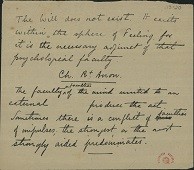 The Will does not exist. It exists
within the sphere of Feeling for
it is the necessary adjunct of that
psychological faculty
Ch. Bt Anon.
faculties
The faculty of the mind united to an
external produce the act.
Sometimes there is a conflict of faculties
of impulses, the strongest or the most
strongly aided predominates.